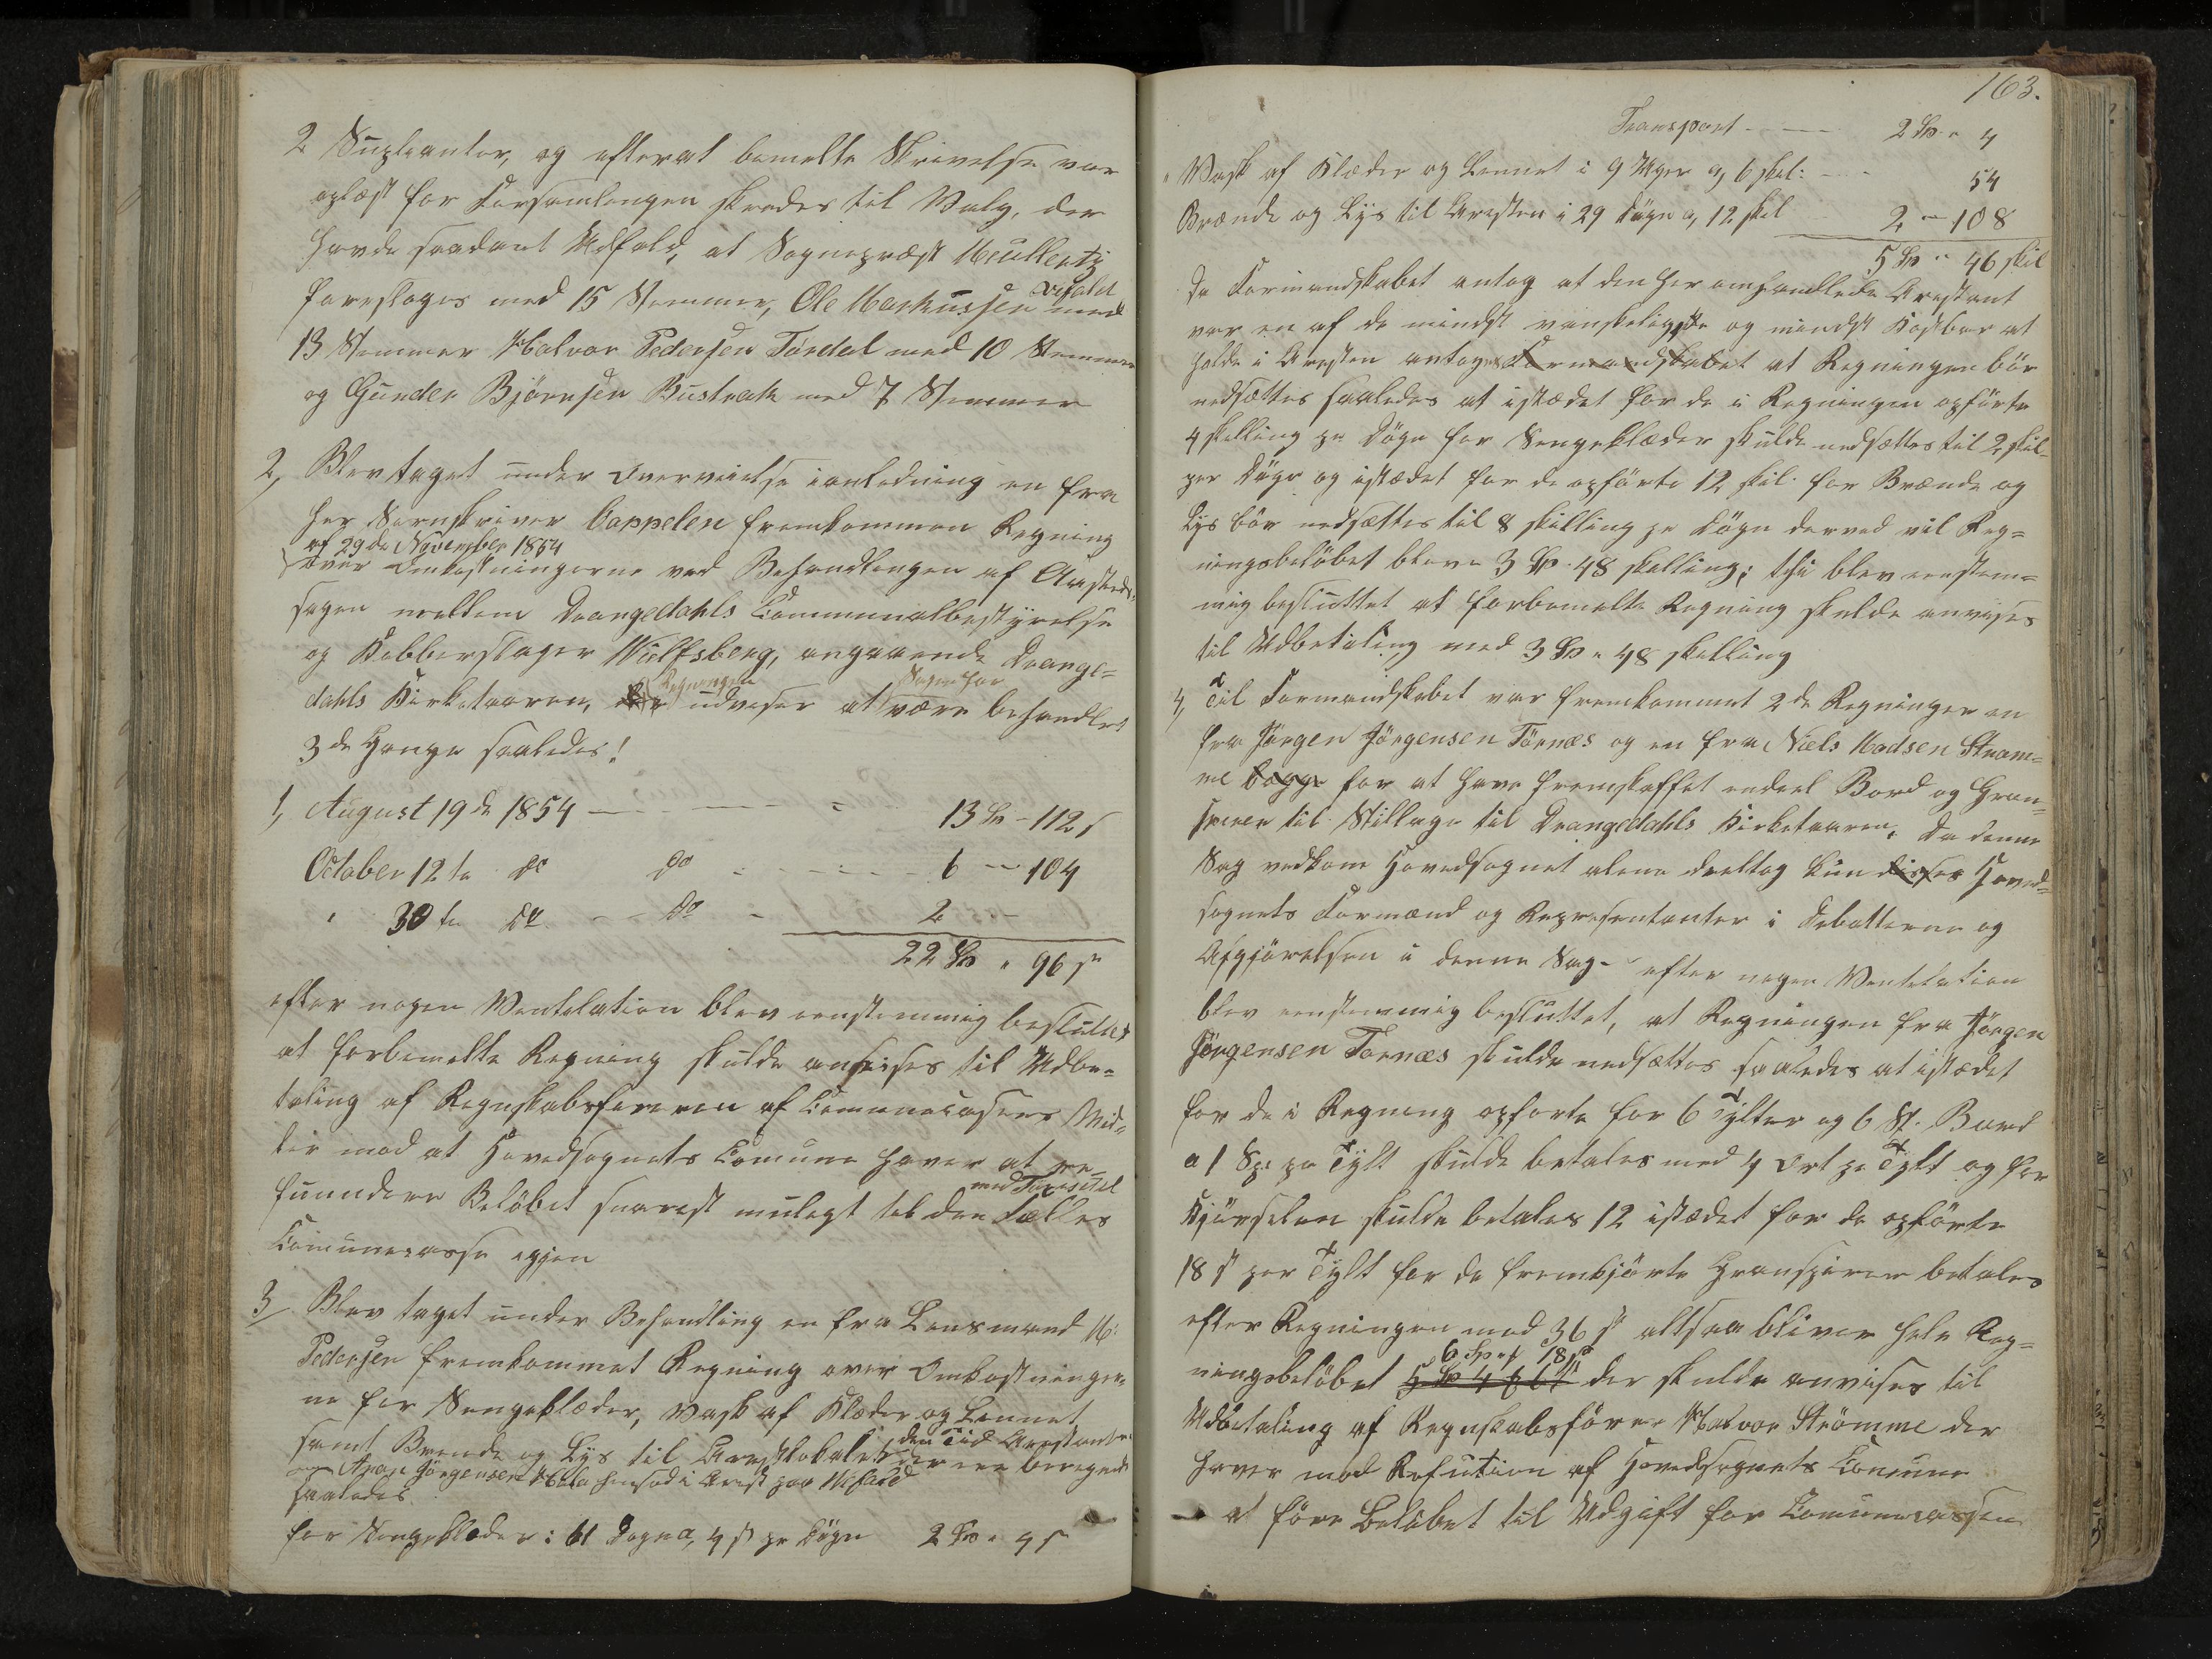 2 Supleanter, og efterat bemelte Skrivelse var
oplæst for Forsamlingen skredes til Valg, der
havde saadant Udfald, at Sognepræst Meullertz
foresloges med 15 Stemmer, Ole Markussen Vefald med
13 Stemmer Halvor Pedersen Tørdal med 10 Stemmer
og Gunder Bjørnsen Bustrak med 7 Stemmer
2, Blev taget under Overveielse ianledning en fra
Her Sornskriver Cappelen fremkommen Regning
af 29de November 1854
over Omkostningerne ved Behandlingen af Aasteds-
sagen mellem Drangedahls Communalbestyrelse
og Kobberslager Wulfsberg, angaaende Drange=
dahls Kirketaaren, Regningen udviser at Sagen har være behandlet
3de Gange saaledes!
1, August 19de 1854 — - - - 13 Sp - 112 s
October 12te do do - - - 6 - 104
" 30te do - - do - 2 - -
22 Sp " 96 s
efter nogen Ventelation blev eenstemmig besluttet
at forbemelte Regning skulde anvises til Udbe=
taling af Regnskabsføreren af Communecasens Mid=
ler mod at Hovedsognets Comune haver at re=
funndere Beløbet snarest mulegt til den Fælles
Comunecasse igjen
3, Blev taget under Behandling en fra Lensmand H.
Pedersen fremkommet Regning over Omkostninger=
ne for Sengeklæder, Vask af Klæder og Linnet
samt Brende og Lys til Arestlokalet den Tid Arestanten
Jørgensen hensad i Arest paa Vefald der ere beregnet
saaledes
for Sengeklæder: 61 Døgn a, 4 s pr Døgn 2 Sp " 4 s
163.
Transport - - — 2 Sp " 4
" Vask af Klæder og Linnet i 9 Uger a, 6 skil: - - 54
Brænde og Lys til Aresten i 29 Døgn a, 12 skil 2 - 108
5 Sp " 46 skil
Da Formandskabet antog at den her omhandlede Arestant
var en af de mindst vanskeligste og mindst Kostbar at
holde i Aresten antoges Formandskabet at Regningen bør
nedsættes saaledes at istædet for de i Regningen opførte
4 skilling pr Døgn for Sengeklæder skulde nedsættes til 2 skil-
per Døgn og istædet for de opførte 12 skil. for Brænde og
Lys bør nedsættes til 8 skilling pr Døgn derved vil Reg=
ningsbeløbet blive 3 Sp. 48 skilling; thi blev eenstem=
mig besluttet at forbemelte Regning skulde anvises
til Udbetaling med 3 Sp " 48 skilling
4, Til Formandskabet var fremkommet 2de Regninger en
fra Jörgen Jörgensen Törnæs og en fra Niels Madsen Stram=
me begge for at have fremskaffet endeel Bord og Gran=
speren til Stillage til Drangedahls Kirketaaren. Da denne
Sag vedkom Hovedsognet alene deeltog kun disses Hoved=
sognets Formænd og Representanter i Debatterne og
Afgjørelsen i denne Sag - efter nogen Ventelation
blev eenstemmig besluttet, at Regningen fra Jörgen
Jörgensen Tornæs skulde nedsættes saaledes at istædet
for de i Regning opførte for 6 Tylter og 6 St. Bord
a 1 Sp: pr Tylt skulde betales med 4 Ort pr Tylt og for
Kjørselen skulde betales 12 istædet for de opførte
18 s per Tylt for de fremkjørte Granspirer betales
efter Regningen med 36 s altsaa bliver hele Reg=
6 Sp " 18 s
ningsbeløbet der skulde anvises til
Udbetaling af Regnskabsfører Halvor Strömme der
haver mod Refution af Hovedsognets Comune
at føre Beløbet til Udgift for Comunecassen